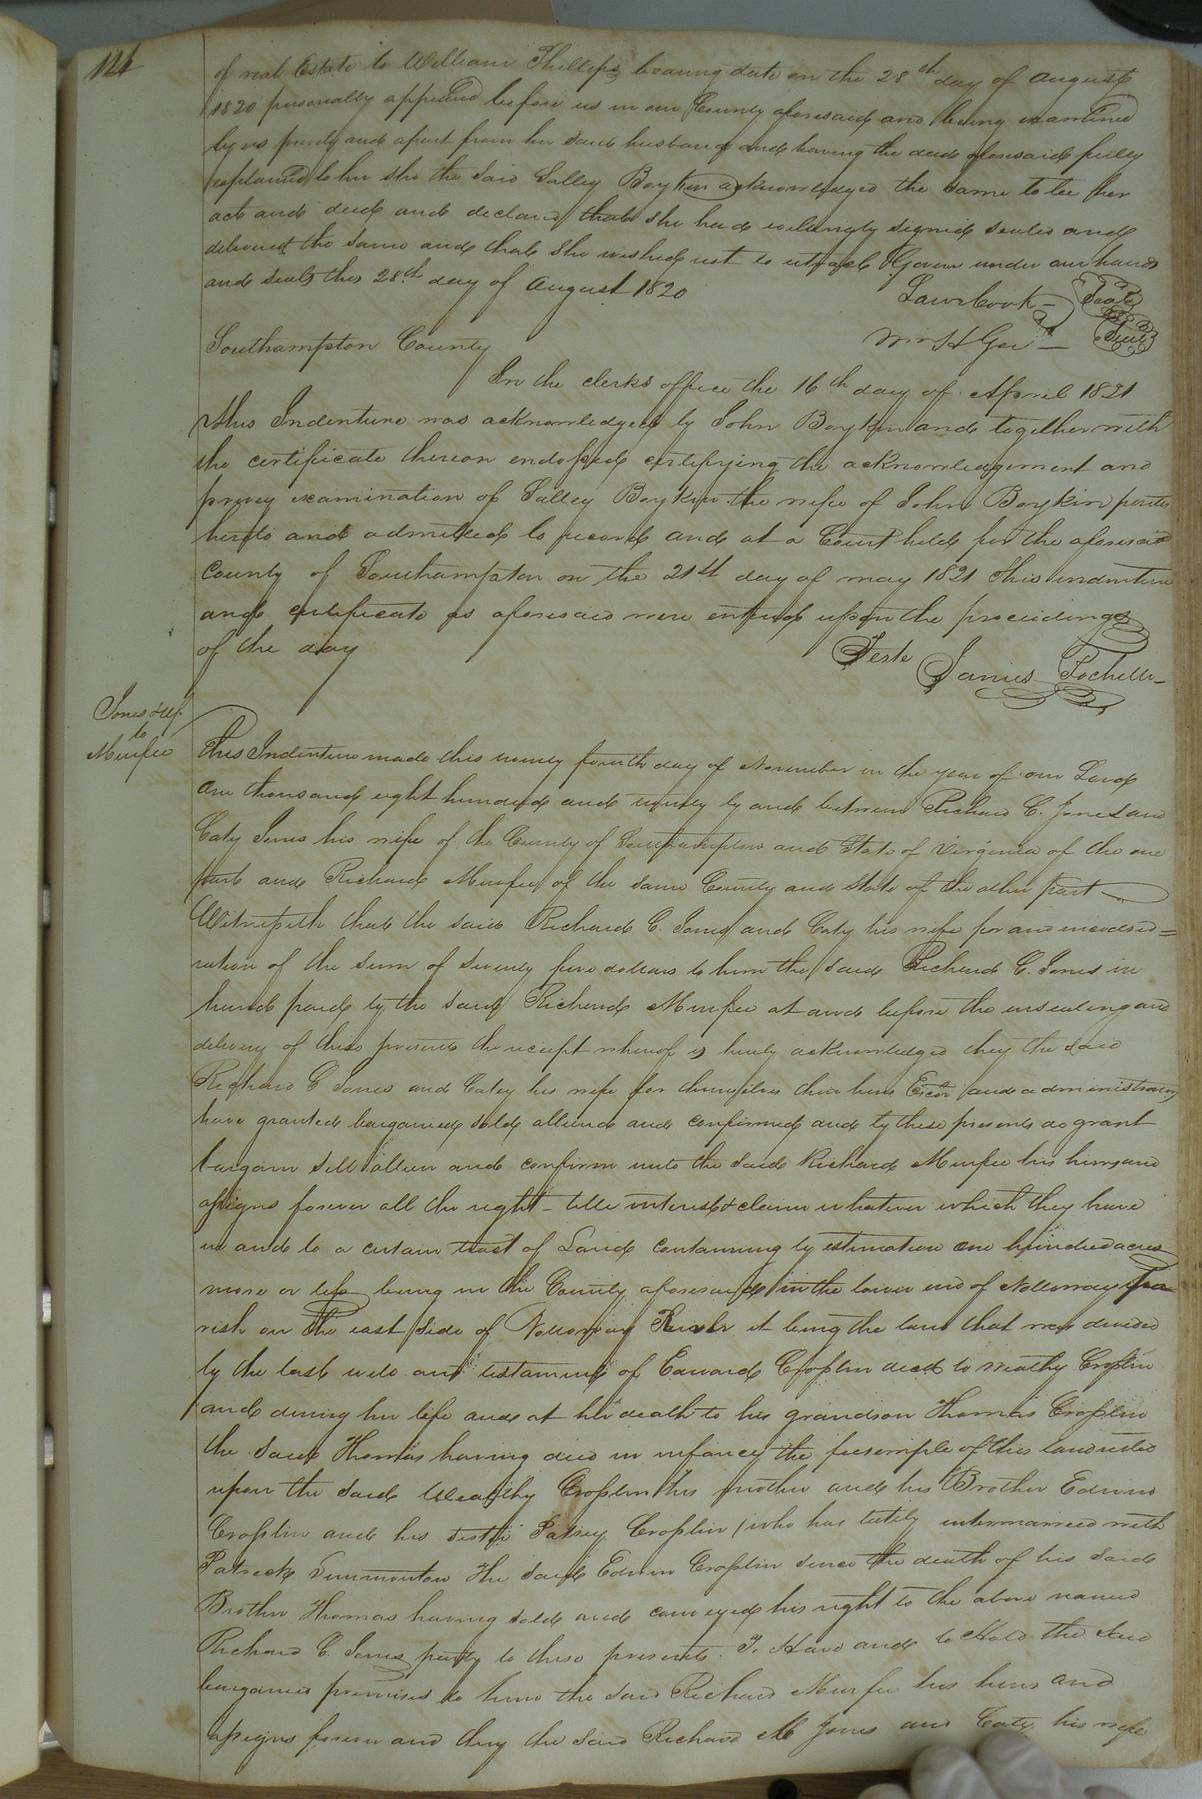 of real Estate to William Phillips bearing date on the 28th day of August
1820 personally appeared before us in our County aforesaid and being examined
by us privily and apart from her said husband and having the deed aforesaid fully
explained to her she the said Salley Boykin acknowledged the same to be her
act and deed and declared that she had willingly signed sealed and
delivered the same and that she wished not to retract it Given under our hands
and seals this 28th day of August 1820
Laws Cook - Seal
Wm H Seal
Southampton County
In the clerks office the 16th day of April 1821
This Indenture was acknowledged by John Boykin and together with
the certificate thereon endorsed certifying the acknowledgement and
privey examination of Salley Boykin the wife of John Boykin parties
hereto and admitted to record and at a Court held for the aforesaid
County of Southampton on the 21st day of may 1821 This indenture
and certificate as aforesaid were entered upon the proceedings
of the day
Teste James Rochelle
114
Jones & Wf.
to
Murfee
This Indenture made this twenty fourth day of November in the year of our Lord
One thousand eight hundred and twenty by and between Richard C. Jones and
Caty Jones his wife of the County of Southampton and State of Virginia of the one
part and Richard Murfee of the same County and State of the other part
Witnesseth that the said Richard C. Jones and Caty his wife for and inconsid=
ration of the sum of Seventy five dollars to him the said Richard C. Jones in
hand paid by the said Richard Murfee at and before the ensealing and
delivery of these presents the receipt whereof is hereby acknowledged they the said
Richard C Jones and Catey his wife for themselves their heirs Exors and administrators
have granted bargained sold aliened and confirmed and by these presents do grant
bargain sell alien and confirm unto the said Richard Murfee his heirs and
assigns forever all the right - title interest & claim whatever which they have
in and to a certain tract of Land containing by estimation one hundred acres
more or less being in the County aforesaid in the lower end of Nottoway Pa
rish on the east side of Nottoway River it being the land that was devised
by the last will and testament of Edward Croslin decd to Wealthy Croslin
and during her life and at her death to his grandson Thomas Croslin
the said Thomas having died in infancy the feesimple of this land vested
upon the said Wealthy Croslin his mother and his Brother Edwin
Croslin and his sister Patsey Croslin (who has lately intermarried with
Patrick Simmonton The said Edwin Croslin since the death of his said
Brother Thomas having sold and conveyed his right to the above named
Richard C. Jones party to these presents. To Have and to Hold the said
bargained premises to him the said Richard Murfee his heirs and
assigns forever and they the said Richard M Jones and Caty his wife